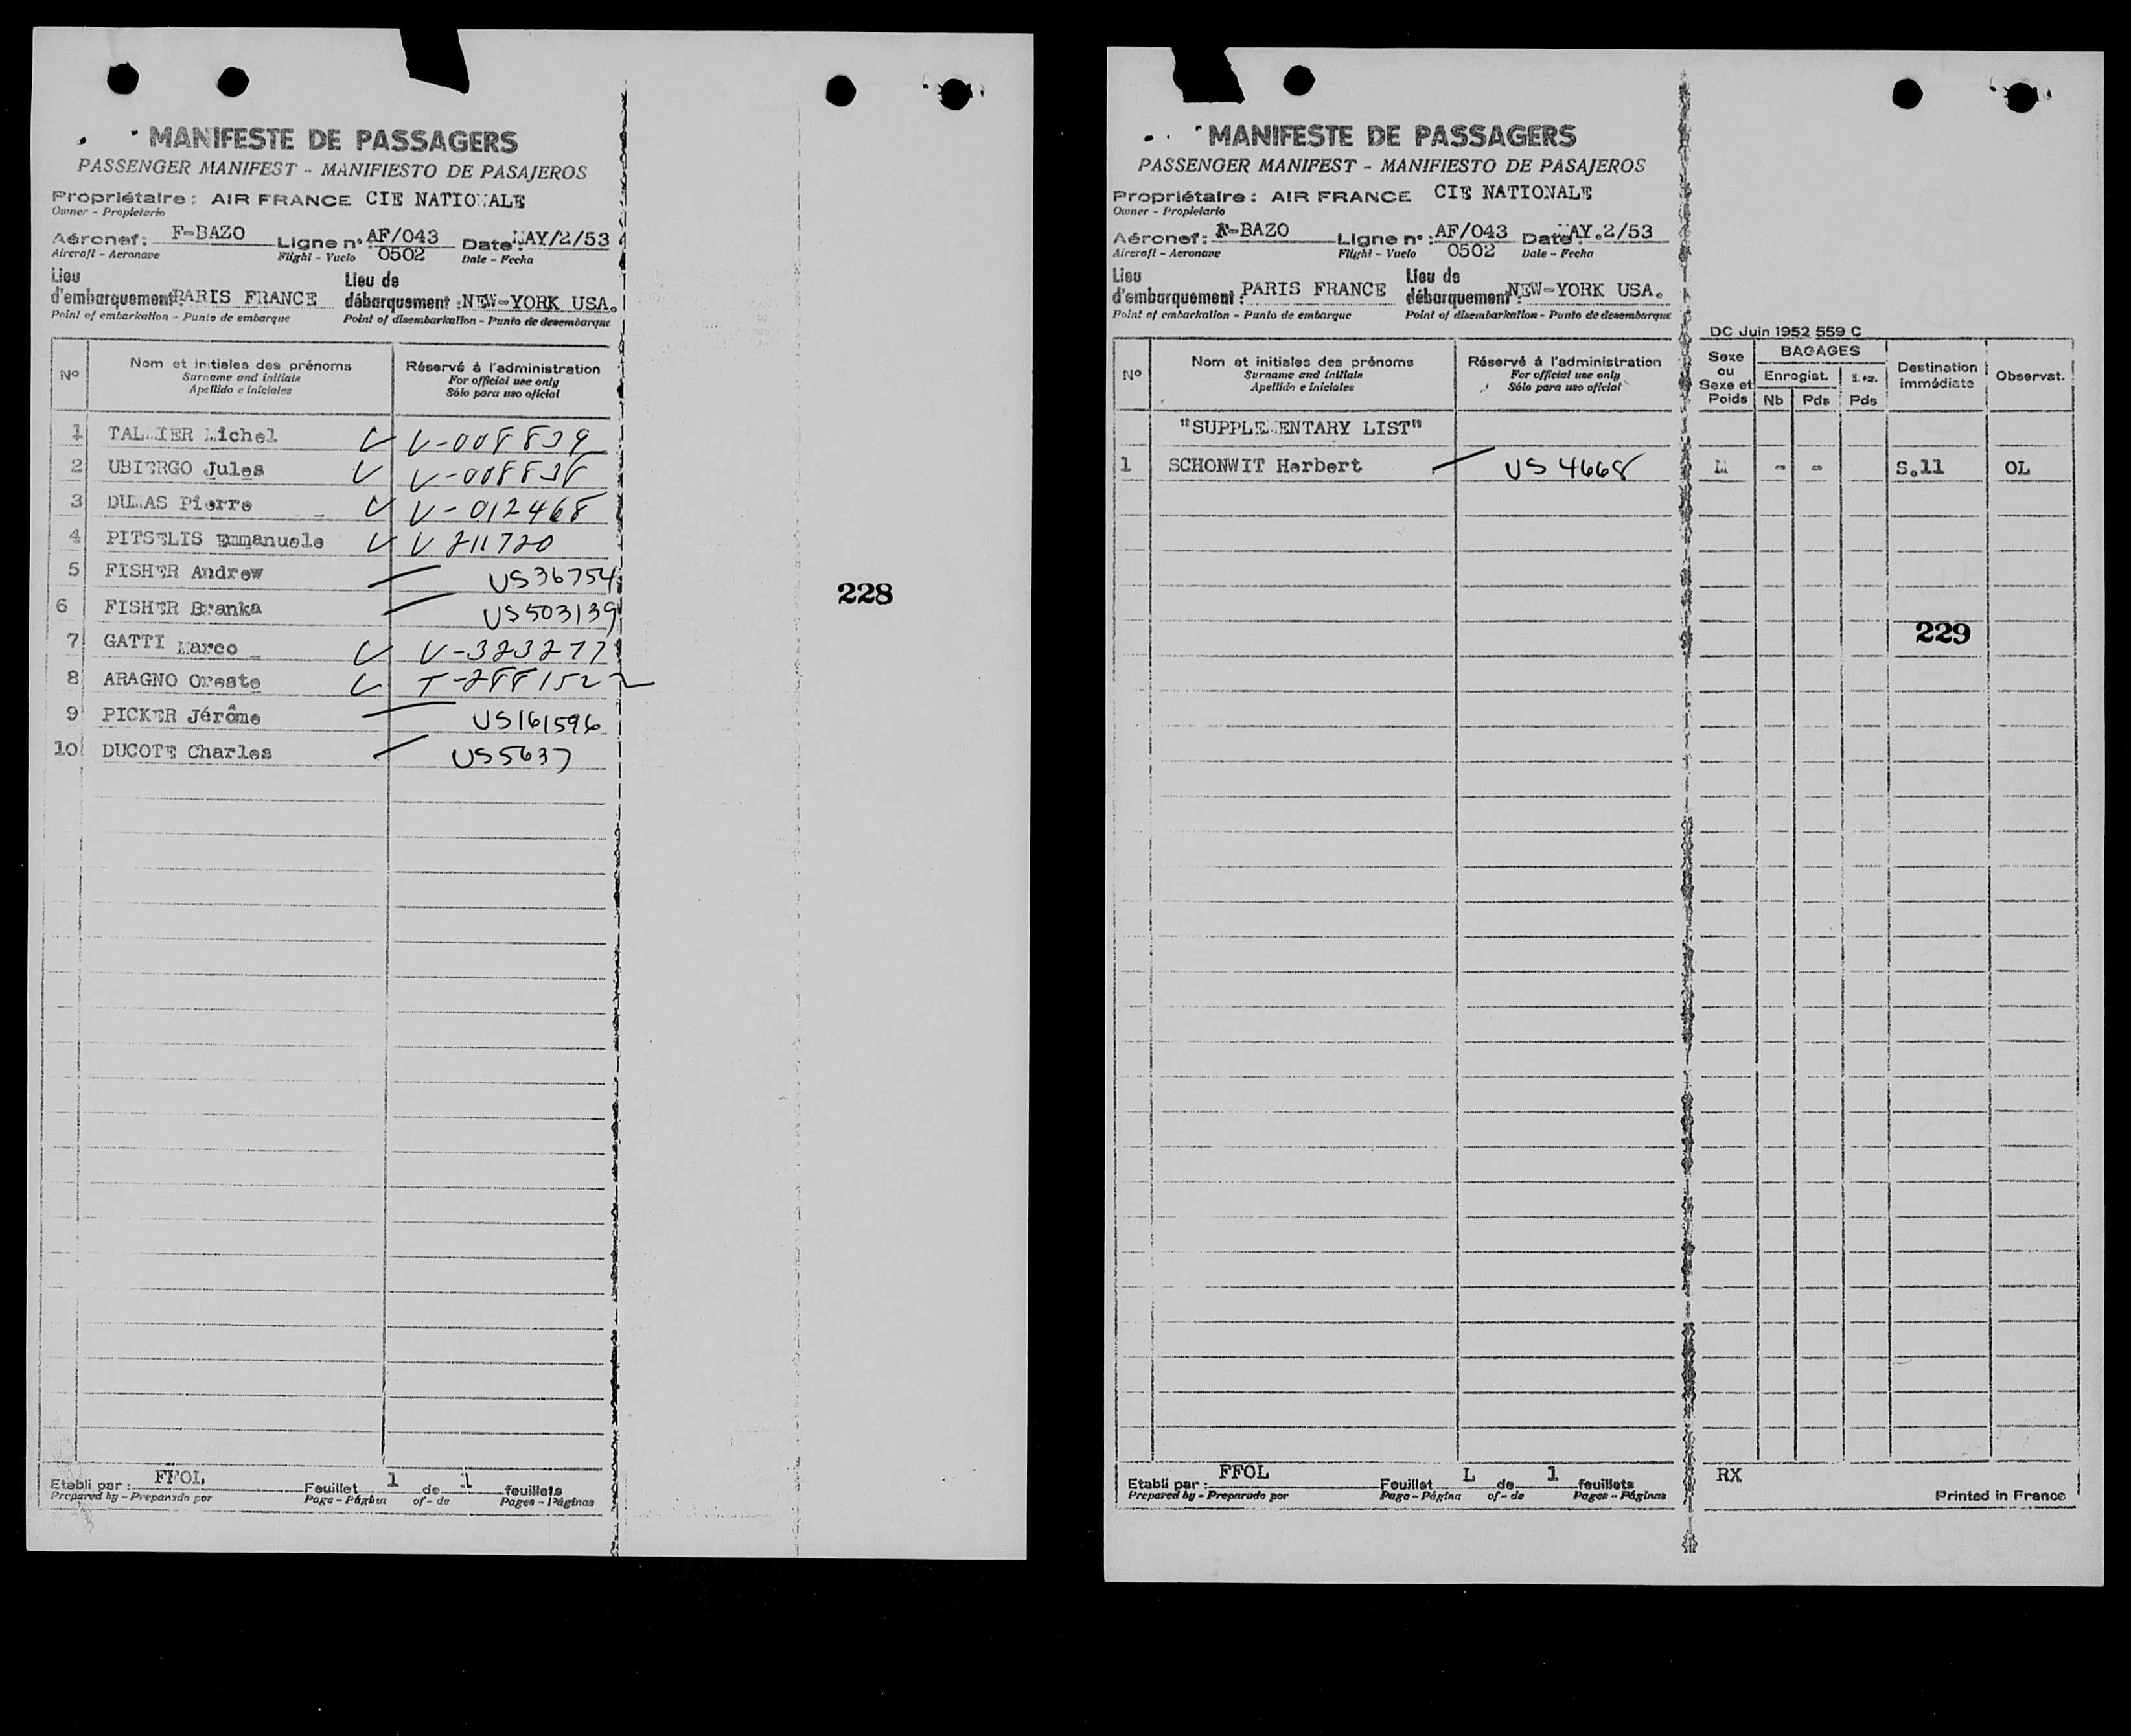 MANIFESTE DE PASSAGERS
PASSENGER MANIFEST - MANIFIESTO DE PASAJEROS
Propriétaire : AIR FRANCE CIE NATIONALE
Owner - Propietario
Aéronef : F-BAZO Ligne n° : AF/043 0502 Date : MAY/2/53
Aircraft - Aeronave Flight - Vuelo Date - Fecha
Lieu d'embarquement : PARIS FRANCE Lieu de débarquement : NEW-YORK USA.
Point of embarkation - Punto de embarque Point of disembarkation - Punto de desembarque
N° Nom et initiales des prénoms Réservé à l'administration
Surname and initials For official use only
Apellido e iniciales Sólo para uso oficial
1 TALMIER Michel V-008839
2 UBIERGO Jules V-008838
3 DUMAS Pierre V-012468
4 PITSELIS Emmanuele V 211720
5 FISHER Andrew US36754
6 FISHER Branka US503139
7 GATTI Marco V-323277
8 ARAGNO Oreste T-288152
9 PICKER Jérôme US161596
10 DUCOTE Charles US5637
228
Etabli par : FFOL Feuillet 1 de 1 feuillets
Prepared by - Preparado por Page - Página of - de Pages - Páginas
MANIFESTE DE PASSAGERS
PASSENGER MANIFEST - MANIFIESTO DE PASAJEROS
Propriétaire : AIR FRANCE CIE NATIONALE
Owner - Propietario
Aéronef : F-BAZO Ligne n° : AF/043 0502 Date : MAY.2/53
Aircraft - Aeronave Flight - Vuelo Date - Fecha
Lieu d'embarquement : PARIS FRANCE Lieu de débarquement : NEW-YORK USA.
Point of embarkation - Punto de embarque Point of disembarkation - Punto de desembarque
DC Juin 1952 559 C
N° Nom et initiales des prénoms Réservé à l'administration Sexe ou Sexe et Poids BAGAGES Destination immédiate Observat.
Surname and initials For official use only Enregist.
Apellido e iniciales Sólo para uso oficial Nb Pds Pds
"SUPPLEMENTARY LIST"
1 SCHONWIT Herbert US 4668 M - - S.11 OL
229
Etabli par : FFOL Feuillet 1 de 1 feuillets RX
Prepared by - Preparado por Page - Página of - de Pages - Páginas Printed in France